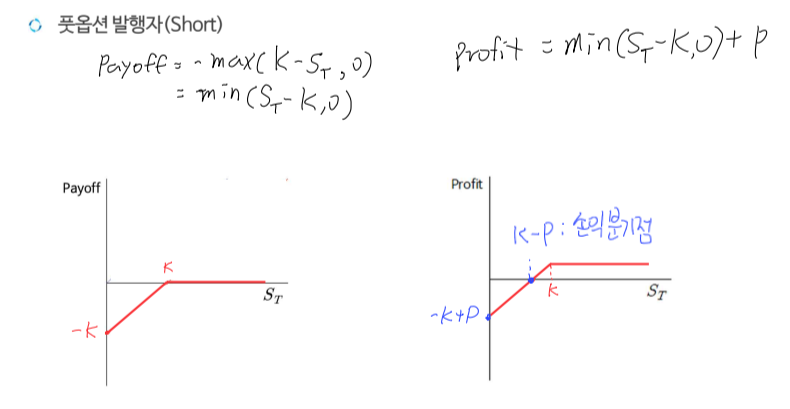 풋옵션 발행자(Short)
Payoff = - max(K-S_T, 0)
= min(S_T-K, 0)
Profit = min(S_T-K, 0) + P
Payoff
K
S_T
-K
Profit
K-P : 손익분기점
K
S_T
-K+P